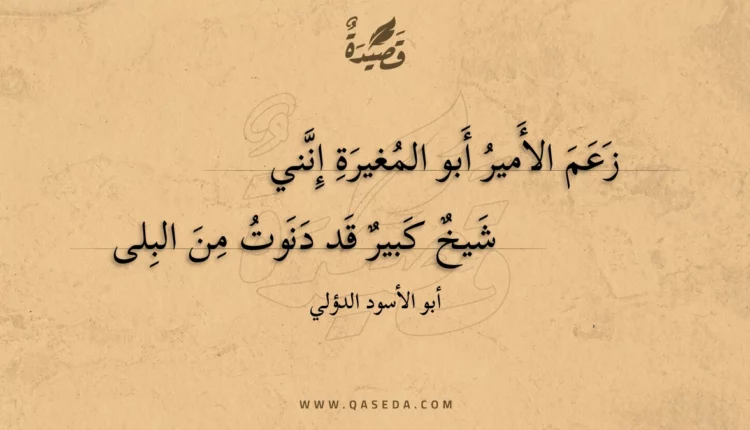 قَصِيدَةٌ
زَعَمَ الأَميرُ أَبو المُغيرَةِ إِنَّني
شَيخٌ كَبيرٌ قَد دَنَوتُ مِنَ البِلى
أبو الأسود الدؤلي
WWW.QASEDA.COM